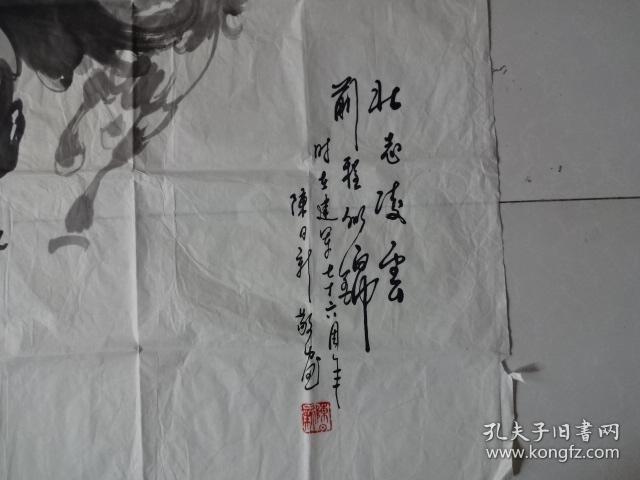 壮志凌雲
前程似錦
时在建軍七十六周年
陳日新敬画
孔夫子旧书网
www.kongfz.com